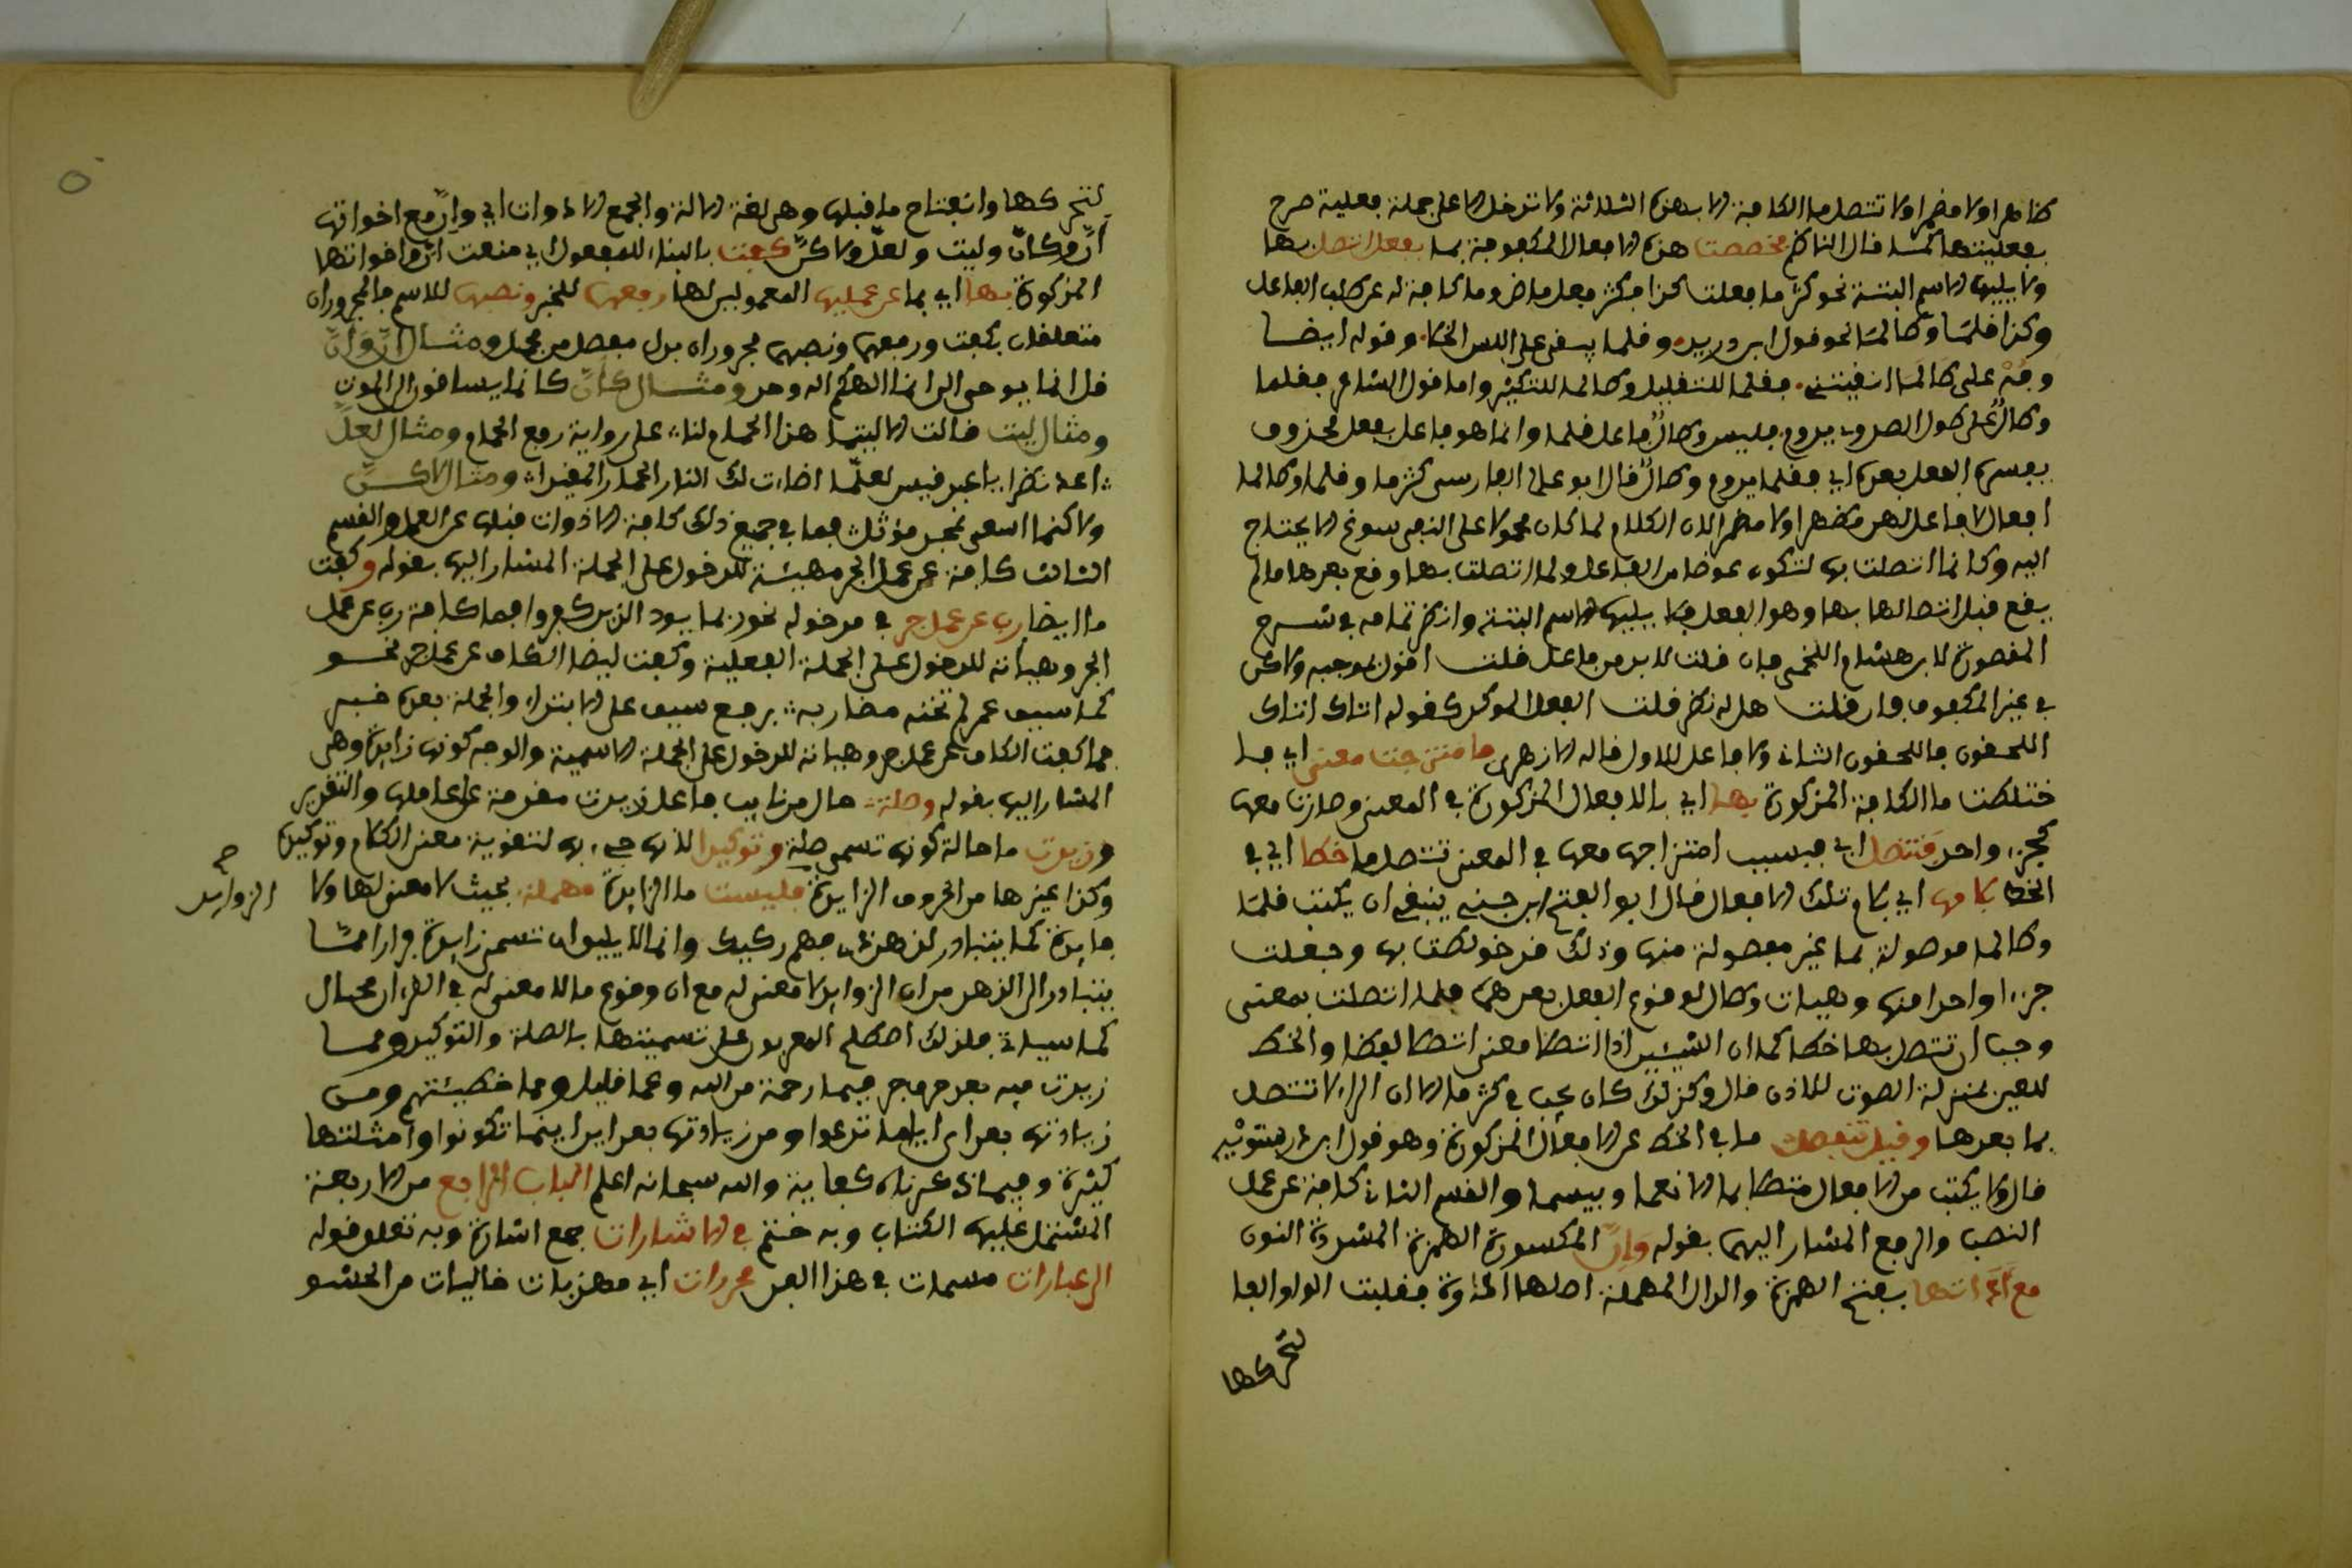 ظاهرا ولا مضمرا ولا تتصل ما الكافة الا بهذه الثلاثة ولا تدخل الا على جملة فعلية صرح
بفعليتها كما قال الناظم فخصصت هذه الافعال المكفوفة بما بفعل اتصل بها
ولا يليها الاسم البتة نحو كثر ما فعلت كذا فكثر فعل ماض وما كافة له عن طلب الفاعل
وكذا قلما وطالما نحو قول ابن دريد وقلما يبقى على اللس الخطا وقوله ايضا
بقلما للتقليل وطالما للتكثير واما قول الشاعر فقلما
وصال على طول الصدود يدوم فليس وصال فاعل قلما وانما هو فاعل بفعل محذوف
يفسره الفعل بعده اي فقلما يدوم وصال قال ابو علي الفارسي كثر ما وقلما وطالما
افعال لا فاعل لهن مظهرا ولا مضمرا لان الكلام لما كان محمولا على النفي سوغ الا يحتاج
اليه وكانما اتصلت بها لتكون عوضا من الفاعل ولما اتصلت بها وقع بعدها ما لم
يقع قبل اتصالها بها وهو الفعل فلا يليها الاسم البتة وانظر تمامه في شرح
المقصورة لابن هشام اللخمي فان قلت لا بد من فاعل قلت اقول بموجبه ولاكن
في غير المكفوف فان قلت هل له نظير قلت الفعل الموكد كقوله اتاك اتاك
اللاحقون فاللاحقون الثاني ولا فاعل للاول قاله الازهري فامتزجت معنى اي فا
ختلطت ما الكافة المذكورة بها اي بالافعال المذكورة في المعنى وصارت معها
كجزء واحد فتتصل اي فبسبب امتزاجها معها في المعنى تتصل ما خطا اي في
الخط بلامها اي بلام تلك الافعال قال ابو الفتح ابن جني ينبغي ان يكتب قلما
وطالما موصولة بما غير مفصولة منها وذلك قد خولطت بها وجعلت
جزءا واحدا منها وهيات وطال لوقوع الفعل بعدهما فلما اتصلت بمعنى
وجب ان تتصل بها خطا كما ان الشيئين اذا اتصلا معنى اتصلا لفظا والخط
للعين بمنزلة الصوت للاذن قال وكذلك كان يجب في كثر ما الا ان الراء لا تتصل
بما بعدها وقيل تنفصل ما في الخط عن الافعال المذكورة وهو قول ابن درستويه
قال ولا يكتب من الافعال متصلا بما الا نعما وبيسما والقسم الثاني كافة عن عمل
النصب والرفع المشار اليهما بقوله وإن المكسورة الهمزة المشددة النون
مع اداتها بفتح الهمزة والدال المهملة اصلها ادوة فقلبت الواو الفا
لتحركها
لتحركها وانفتاح ما قبلها وهي لغة الالة والجمع الادوات اي وإن مع اخواتها
أن وكأن وليت ولعل ولاكن كفت بالبناء للمفعول اي منعت إن واخواتها
المذكورة بها اي بما عن عمليها المعمولين لها رفعها للخبر ونصبها للاسم فالمجروران
متعلقان بكفت ورفعها ونصبها مجروران بدل مفصل من مجمل ومثال إن وأن
قل انما يوحى الي انما الهكم اله وحد ومثال كأن كانما يساقون الى الموت
ومثال ليت قالت الا ليتما هذا الحمام لنا على رواية رفع الحمام ومثال لعل
اعد نظرا يا عبد قيس لعلما اضاءت لك النار الحمار المقيدا ومثال لاكن
ولاكنما اسعى لمجد مؤثل فما في جميع ذلك كافة الادوات قبلها عن العمل والقسم
الثالث كافة عن عمل الجر مهيئة للدخول على الجملة المشار اليها بقوله وكفت
ما ايضا رب عن عمل جر في مدخوله نحو ربما يود الذين كفروا فما كافة رب عن عمل
الجر وهياته للدخول على الجملة الفعلية وكفت ايضا الكاف عن عمل جر نحو
كما سيف عمرو لم تخنه مضاربه برفع سيف على الابتداء والجملة بعده خبر
فما كفت الكاف عن عمل جر وهياته للدخول على الجملة الاسمية والوجه كونها زايدة وهي
المشار اليها بقوله وصلة حال من نايب فاعل زيدت مقدمة على عاملها والتقدير
وزيدت ما حالة كونها تسمى صلة وتوكيدا لانها جيء بها لتقوية معنى الكلام وتوكيده
وكذا غيرها من الحروف الزايدة فليست ما الزايدة مهملة بحيث لا معنى لها ولا
صح
الزوايد
فايدة كما يتبادر لذهن ذي فهم ركيك وانما لا يليق ان تسمى زايدة فرارا مما
يتبادر الى الذهن من ان الزوايد لا معنى له مع ان وقوع ما لا معنى له في القرءان محال
كما سياتي فلذلك اصطلح المعربون على تسميتها بالصلة والتوكيد ومما
زيدت فيه بعد حرف جر فبما رحمة من الله وعما قليل ومما خطيئتهم ومن
زيادتها بعد اي اياما تدعوا ومن زيادتها بعد اين اينما تكونوا وامثلتها
كثيرة وفيما ذكرناه كفاية والله سبحانه اعلم الباب الرابع من الاربعة
المشتمل عليها الكتاب وبه ختم في الاشارات جمع اشارة وبه تعلق قوله
الى عبارات مسمات في هذا الفن محررات اي مهذبات خاليات من الحشو